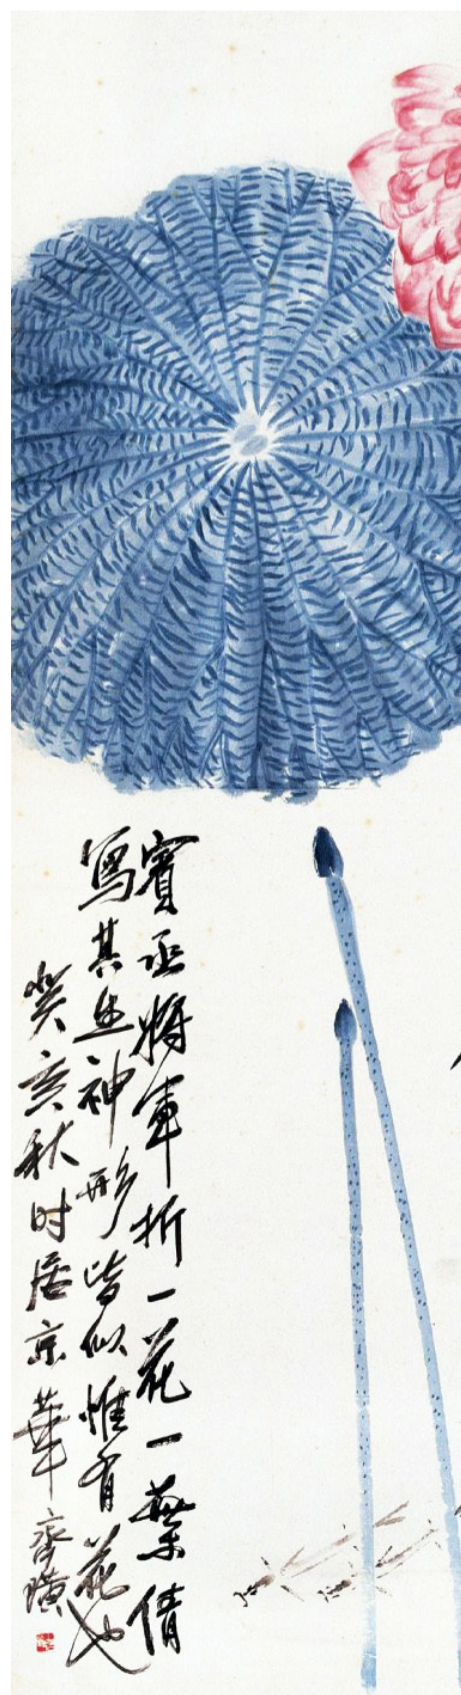 寶丞將軍折一花一葉倩
寫其生神形皆似惟有花也
癸亥秋时居京華齊璜